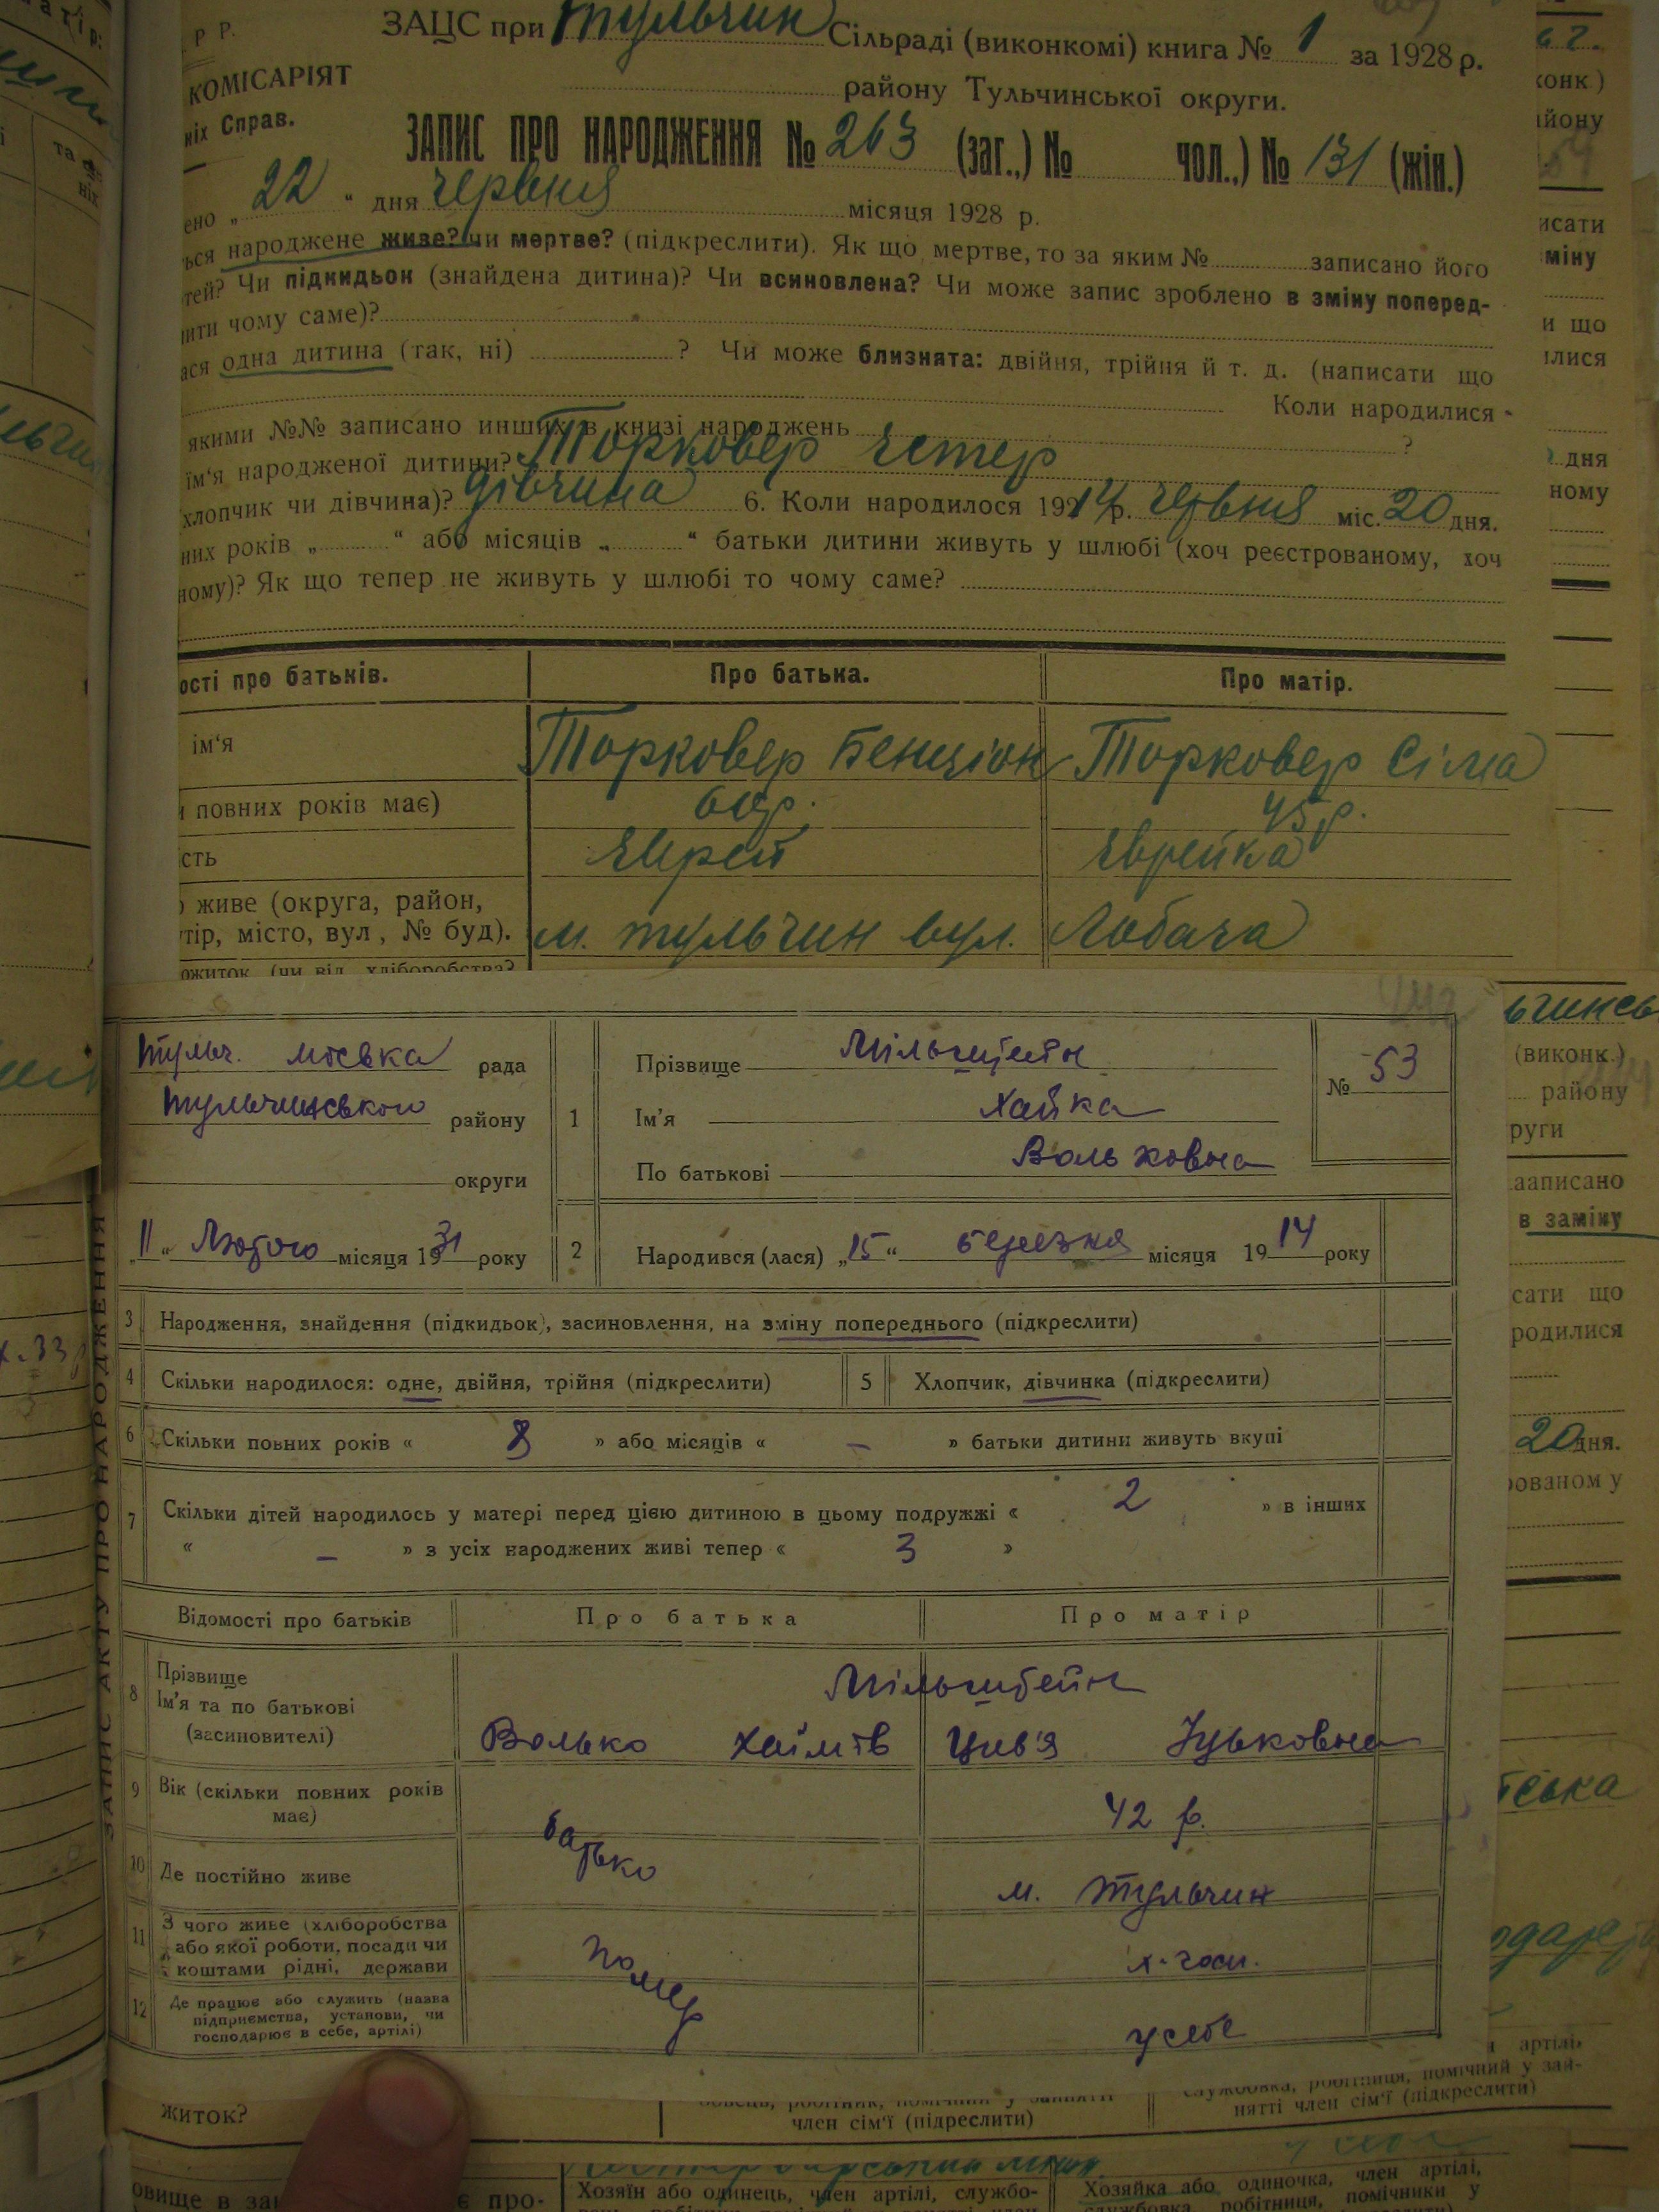 Р Р.
ЗАЦС при Тульчин Сільраді (виконкомі) книга № 1 за 1928 р.
КОМІСАРІЯТ
району Тульчинської округи.
ніх Справ.
ЗАПИС ПРО НАРОДЖЕННЯ № 263 (заг.,) № чол.,) № 131 (жін.)
ено „ 22 “ дня червня місяця 1928 р.
ься народжене живе? чи мертве? (підкреслити). Як що мертве, то за яким № записано його
тей? Чи підкидьок (знайдена дитина)? Чи всиновлена? Чи може запис зроблено в зміну поперед-
ити чому саме)?
ася одна дитина (так, ні) ? Чи може близнята: двійня, трійня й т. д. (написати що
Коли народилися
якими №№ записано инших в книзі народжень ?
ім‘я народженої дитини? Торковер Естер
хлопчик чи дівчина)? дівчина 6. Коли народилося 1914р. червня міс. 20 дня.
них років „ “ або місяців „ “ батьки дитини живуть у шлюбі (хоч реєстрованому, хоч
ному)? Як що тепер не живуть у шлюбі то чому саме?
ості про батьків. Про батька. Про матір.
ім‘я Торковер Бенціон Торковер Сіма
повних років має) 60р. 45 р.
сть Еврей Еврейка
живе (округа, район,
тір, місто, вул , № буд). м. Тульчин вул. Лобача
ожиток (чи від хліборобства?
Тульч. міська рада
Прізвище Мільштейн
№ 53
Тульчинського району
1
Ім’я Хайка
По батькові Вольковна
округи
„ 11 “ Лютого місяця 1931 року
2 Народився (лася) „15“ березня місяця 1914 року
ЗАПИС АКТУ ПРО НАРОДЖЕННЯ
3 Народження, знайдення (підкидьок), засиновлення, на зміну попереднього (підкреслити)
4 Скільки народилося: одне, двійня, трійня (підкреслити) 5 Хлопчик, дівчинка (підкреслити)
6 Скільки повних років « 8 » або місяців « – » батьки дитини живуть вкупі
7 Скільки дітей народилось у матері перед цією дитиною в цьому подружжі « 2 » в інших
« – » з усіх народжених живі тепер « 3 »
Відомості про батьків Про батька Про матір
8 Прізвище
Ім’я та по батькові
(засиновителі)
Мільштейн
Волько Хаімів Цив’я Зуьковна
9 Вік (скільки повних років
має) 42 р.
батько
10 Де постійно живе м. Тульчин
11 З чого живе (хліборобства
або якої роботи, посади чи
коштами рідні, держави
помер
12 Де працює або служить (назва
підприємства, установи, чи
господарює в себе, артілі)
у себе
житок?
член сім‘ї (підреслити)
службовка, робітниця, помічний у зай-
нятті член сім‘ї (підкреслити)
Хозяїн або одинець, член артілі, службо-
Хозяйка або одиночка, член артілі,
службовка, робітниця, помічники у